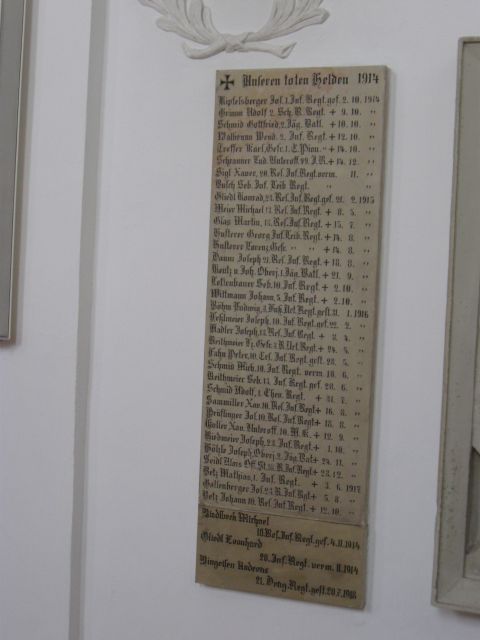 Unseren toten Helden 1914
Kipfelsberger Jos. 1. Inf. Regt. gef. 2. 10. 1914
Grimm Adolf 2. Sch. R. Regt. + 9. 10. "
Schmid Gottfried, 2. Jäg. Batl. + 10. 10. "
Wend. 2. Inf. Regt. + 12. 10. "
Treffer Karl, Gefr. 1. Pion. " + 14. 10. "
Schranner Lud. Unteroff. J. R. + 14. 12. "
Sigl Xaver, 20. Res. Inf. Regt. verm. 11. "
Busch Seb. Inf. Leib Regt. " "
Gliedl Konrad, 23. Res. Inf. Regt. gef. 21. 2. 1915
Meier Michael 13. Res. Inf. Regt. + 8. 5. "
Glas Martin, 13. Res. Inf. Regt. + 15. 7. "
Husterer Georg Inf. Leib. Regt. + 14. 8. "
Husterer Lorenz Gefr. " " + 14. 8. "
Daum Joseph 21. Res. Inf. Regt. + 18. 8. "
Joh. Oberj. 1. Jäg. Batl. + 21. 9. "
Lettenbauer Seb. 10. Inf. Regt. + 2. 10. "
Wittmann Johann, 5. Inf. Regt. + 2. 10. "
Böhm Ludwig, Regt. gest. 11. 1. 1916
Joseph, 10. Inf. Regt. gef. 22. 2. "
Joseph, 13. Res. Inf. Regt. + 8. 4. "
Reithmeier Gefr. Regt. + 24. 5. "
Peter, 10. Inf. Regt. gest. 28. 5. "
Schmid Mich. 10. Inf. Regt. verm. 18. 6. "
Reithmeier Seb. 13. Inf. Regt. gef. 28. 6. "
Schmid Adolf, 1. Chev. Regt. + 31. 7. "
Sammiller Xav. 10. Res. Inf. Regt. + 16. 8. "
Pröflinger Jos. 10. Res. Inf. Regt. + 18. 8. "
Goller Xav. Unteroff. 10. + 12. 9. "
Riedmeier Joseph, 23. Inf. Regt. + 1. 10. "
Joseph, Oberj. 2. Jäg. Batl. + 24. 11. "
Seidl Alois R. Inf. Regt. + 23. 12. "
Betz Mathias, 1. Inf. Regt. + 3. 6. 1917
Gallenberger Jos. 23. R. Inf. Regt. + 5. 8. "
Betz Johann 10. Res. Inf. Regt. + 12. 10. "
Michael
10. Res. Inf. Regt. gef. 4. 11. 1914
Gliedl Leonhard
20. Inf. Regt. verm. 11. 1914
Andreas
21. Regt. gest. 20. 7. 1918